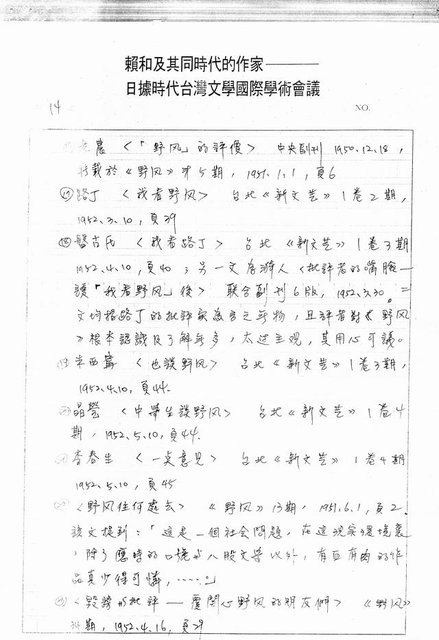 賴和及其同時代的作家———
日據時代台灣文學國際學術會議
14 NO.
農 〈「野风」的評價〉 中央副刊 1950.12.18,
轉載於《野风》第5期, 1951.1.1, 頁6
路丁 〈我看野风〉 台北《新文芸》1卷2期,
1952.3.10, 頁39
盤古氏 〈我看路丁〉 台北《新文芸》1卷3期
1952.4.10, 頁40; 另一文 人〈批評者的嘴臉—
讀「我看野风」後〉 聯合副刊6版, 1952.3.30。二
文均指路丁的批評 為言之無物, 且評者對《野风
》根本認識及了解無多, 太过主观, 其用心可議。
〈也談野风〉 台北《新文芸》1卷3期,
1952.4.10, 頁44.
晶瑩 〈中學生談野风〉 台北《新文芸》1卷4
期, 1952.5.10, 頁44.
李春生 〈一点意见〉 台北《新文芸》1卷4期
1952.5.10, 頁45
〈野风往何處去〉 《野风》13期, 1951.6.1, 頁2.
該文提到:「這是一個社會問題, 在這現實環境裏
, 除了應時的口號与八股文学以外, 有血有肉的作
品真少得可憐, ……」
批評 — 覆関心野风的朋友們〉 《野风》
期, 1952.4.16, 頁39